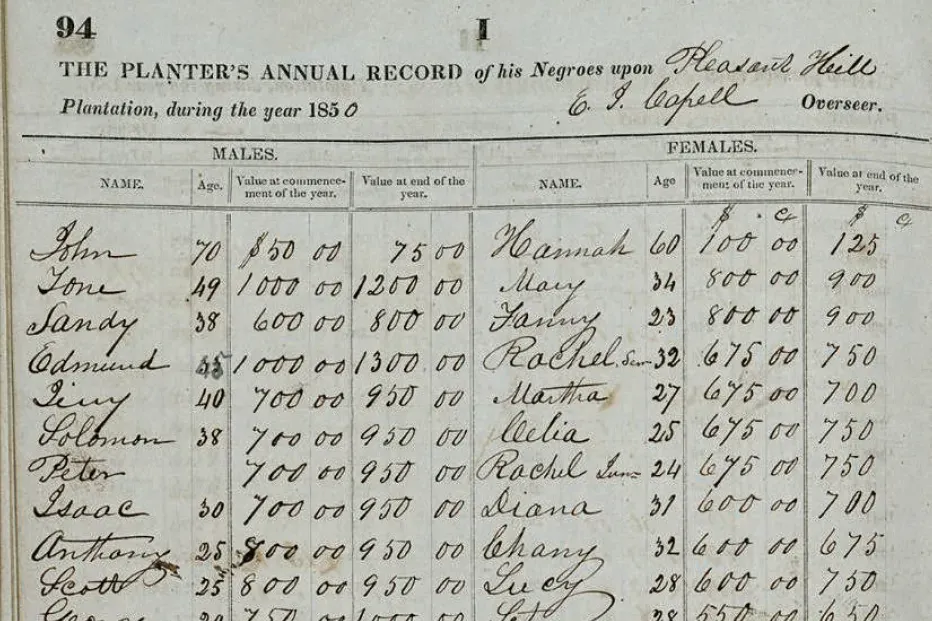 94 I
THE PLANTER'S ANNUAL RECORD of his Negroes upon Pleasant Hill
Plantation, during the year 1850 E. J. Capell Overseer.
MALES. FEMALES.
NAME. Age. Value at commencement of the year. Value at end of the year. NAME. Age Value at commencement of the year. Value at end of the year.
$ c $ c
John 70 $50 00 75 00 Hannah 60 100 00 125
Tone 49 1000 00 1200 00 Mary 34 800 00 900
Sandy 38 600 00 800 00 Fanny 23 800 00 900
Edmund 1000 00 1300 00 Rachel Sen 32 675 00 750
40 700 00 950 00 Martha 27 675 00 700
Solomon 38 700 00 950 00 Celia 25 675 00 750
Peter 700 00 950 00 Rachel Jun 24 675 00 750
Isaac 30 700 00 950 00 Diana 31 600 00 700
Anthony 25 800 00 950 00 Chany 32 600 00 675
Scott 25 800 00 950 00 Lucy 28 600 00 750
750 00 1000 00 28 550 00 650